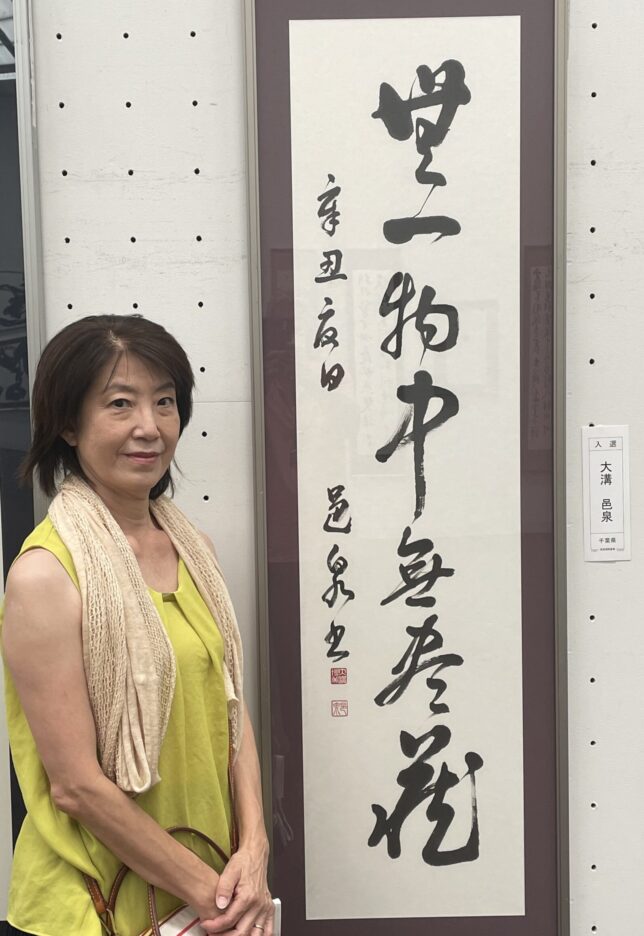 無一物中無尽蔵
辛丑夏日
邑泉書
入選
大溝 邑泉
千葉県